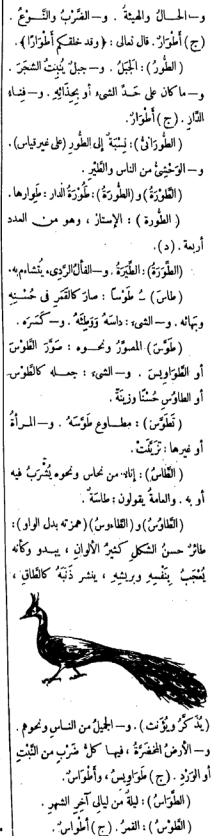 و-الحالُ والهيئةُ . و-الضَّرْبُ والنَّوْعُ .
(ج) أَطْوَارٌ. قال تعالى : ﴿ وقد خلقكم أَطْوَارًا ﴾ .
(الطُّورُ) : الجَبَلُ . و- جبلٌ يُنبِتُ الشجرَ .
و-ماكان على حَدِّ الشىءِ أو بِحِذَائِهِ . و-فِناءُ
الدَّارِ . (ج) أَطْوَارٌ.
(الطُّورَانىُّ) : نِسْبَةٌ إلى الطُّورِ (على غيرقياس) .
و- الوَحْشِىُّ من الناس والطَّيْرِ .
(الطَّوْرَةُ) و (الطُّورَةُ) : طَوْرَةُ الدارِ : طَوارها.
(الطُّورة ) : الإستارُ ، وهو من العدد
أربعة . (د) .
(الطِّوَرَةُ) : الطِّيَرَةُ . و-الفألُ الرَّدِىءُ، يُتشاءم به.
(طاسَ) ُ طَوْسًا : صارَ كالقَمَرِ فى حُسْنِهِ
وبهائه . و-الشىءَ : داسَهُ وَوَطِئَهُ . و- كَسَرَه .
(طَوَّسَ) المصوِّرُ ونحوه : صَوَّرَ الطَّوْسَ
أو الطَّوَاوِيسَ . و-الشىءَ : جعله كالطَّوْسِ
أو الطاوُسِ حُسْنًا وزِينَةً .
(تَطَوَّسَ) : مطاوع طَوَّسَهُ . و-المرأةُ
أو غيرها : تَزَيَّنَتْ .
(الطَّاسُ) : إناءٌ من نحاس ونحوه يُشْرَبُ فيه
أو به . والعامةُ يقولون : طاسَةٌ .
(الطَّاوُسُ) و (الطَّاءوسُ) (همزته بدل الواو) :
طائرٌ حسنُ الشكلِ كثيرُ الألوانِ ، يبدو وكأنه
يُعْجَبُ بِنَفْسِهِ وبريشِهِ ، ينشر ذَنَبَهُ كالطَّاقِ ،
(يُذكَّرُ ويُؤَنث) . و-الجميلُ من الناسِ ونحوهم .
و-الأرضُ المُخضَرَّةُ ، فيها كلُّ ضَرْبٍ من النَّبْتِ
أو الوَرْدِ . (ج) طَوَاوِيسُ ، وأَطْوَاسٌ .
(الطَّوَاسُ) : ليلةٌ من ليالى آخِرِ الشهرِ .
(الطَّوْسُ) : القمرُ . (ج) أَطْوَاسٌ .